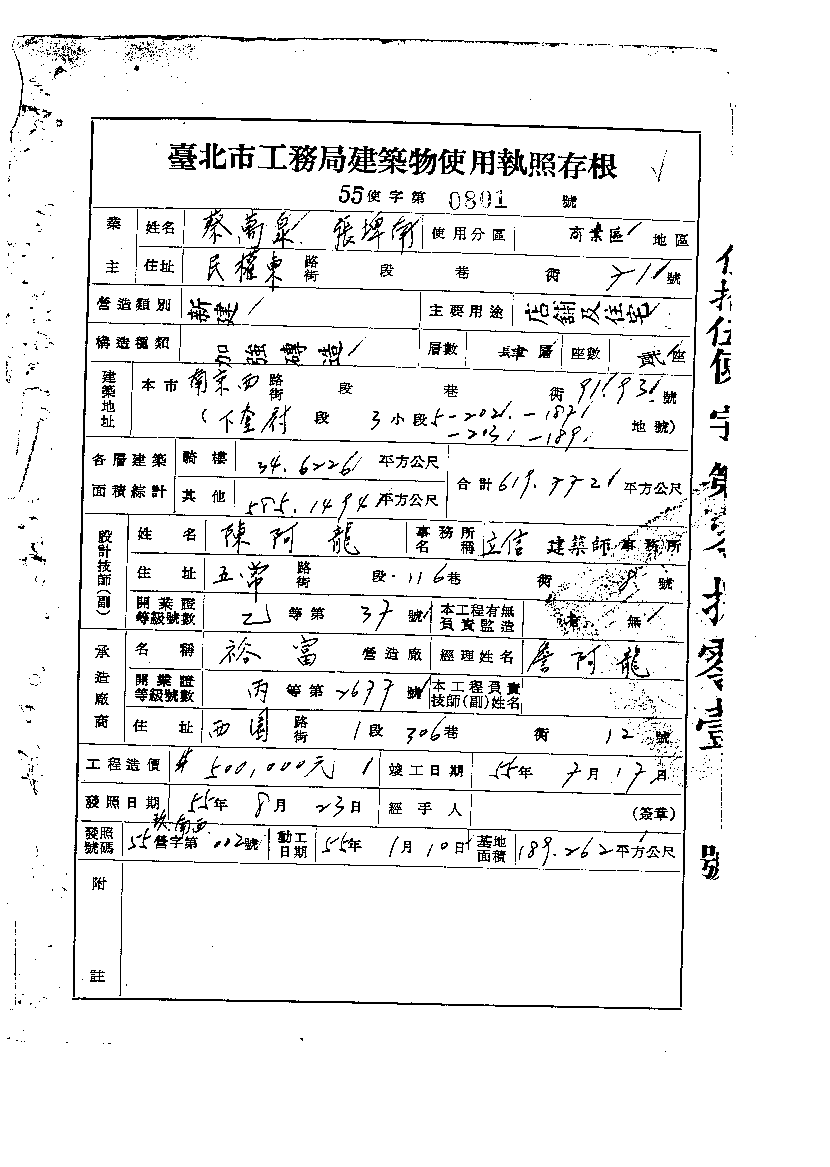 臺北市工務局建築物使用執照存根
55使字第 0801 號
業主 姓名 蔡萬泉 張埤角 使用分區 商業區 地區
住址 民權東 路街 段 巷 衖 71 號
營造類別 新建 主要用途 店舖及住宅
構造種類 加強磚造 層數 層 座數 貳座
建築地址 本市 南京西 路街 段 巷 衖 91.93 號
(下奎府 段 3 小段 5-202.-187 地號)
-203.-189
各層建築面積綜計 騎樓 34.6226 平方公尺 合計 619.7720 平方公尺
其他 585.1494 平方公尺
設計技師(副) 姓名 陳阿龍 事務所名稱 立信 建築師事務所
住址 五常 路街 段 116巷 衖 8 號
開業證等級號數 乙 等第 37 號 本工程有無負責監造 有 無
承造廠商 名稱 裕富 營造廠 經理姓名 詹阿龍
開業證等級號數 丙 等第 2677 號 本工程負責技師(副)姓名
住址 西園 路街 1段 306巷 衖 12 號
工程造價 500,000元 竣工日期 55年 7月 17日
發照日期 55年 8月 23日 經手人 (簽章)
發照號碼 55營字第 002號 動工日期 55年 1月 10日 基地面積 189.262平方公尺
附註
伍拾伍使字第零捌零壹號